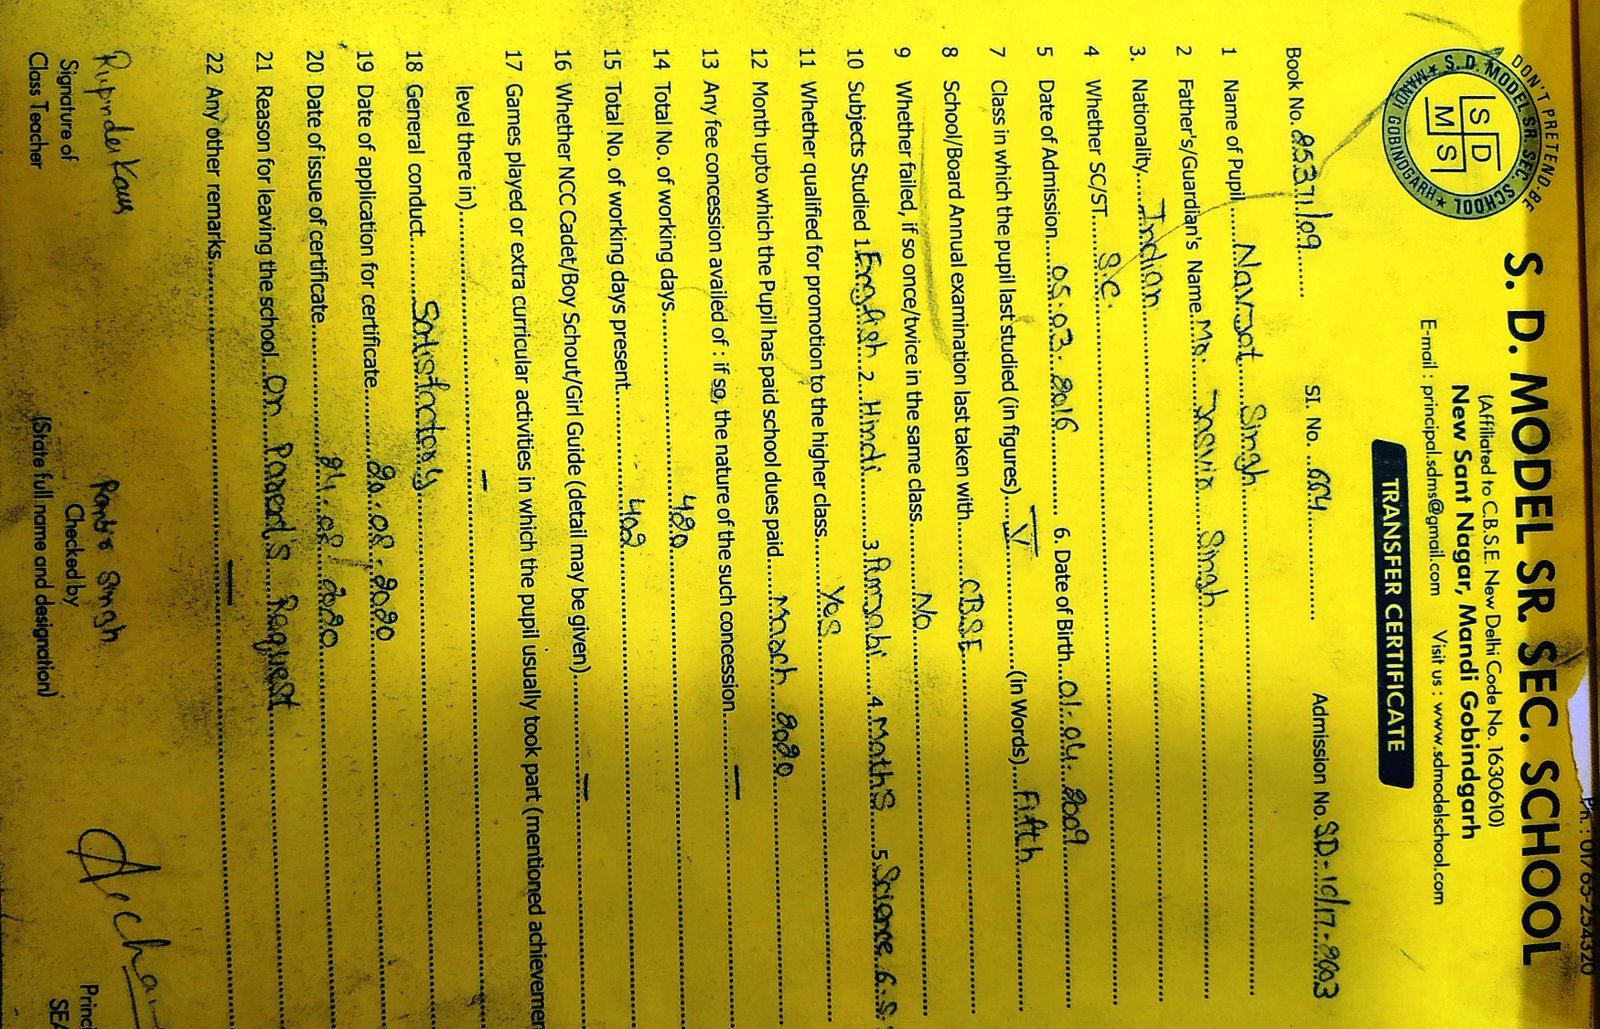 Ph.: 01765-254320
DON'T PRETEND-BE
S. D. MODEL SR. SEC. SCHOOL
MANDI GOBINDGARH
S D
M S
S. D. MODEL SR. SEC. SCHOOL
(Affiliated to C.B.S.E. New Delhi Code No. 1630610)
New Sant Nagar, Mandi Gobindgarh
E-mail : principal.sdms@gmail.com Visit us : www.sdmodelschool.com
TRANSFER CERTIFICATE
Book No. 2537/09 SI. No. 604 Admission No. S.D-10/17-2003
1 Name of Pupil Navjot Singh
2 Father's/Guardian's Name Mr. Singh
3. Nationality Indian
4 Whether SC/ST S.C.
5 Date of Admission 05.03.2016 6. Date of Birth 01.04.2009
7 Class in which the pupil last studied (in figures) V (in Words) Fifth
8 School/Board Annual examination last taken with CBSE
9 Whether failed, if so once/twice in the same class No
10 Subjects Studied 1. English 2. Hindi 3. Punjabi 4. Maths 5. Science 6. S.
11 Whether qualified for promotion to the higher class Yes
12 Month upto which the Pupil has paid school dues paid March 2020
13 Any fee concession availed of : if so, the nature of the such concession —
14 Total No. of working days 420
15 Total No. of working days present 402
16 Whether NCC Cadet/Boy Schout/Girl Guide (detail may be given) —
17 Games played or extra curricular activities in which the pupil usually took part (mentioned achievemen
level there in) —
18 General conduct Satisfactory
19 Date of application for certificate 20.08.2020
20 Date of issue of certificate 24.08.2020
21 Reason for leaving the school On Parent's Request
22 Any other remarks —
Rupinder Kaur Singh Archa
Signature of Checked by Princi
Class Teacher (State full name and designation) SEA